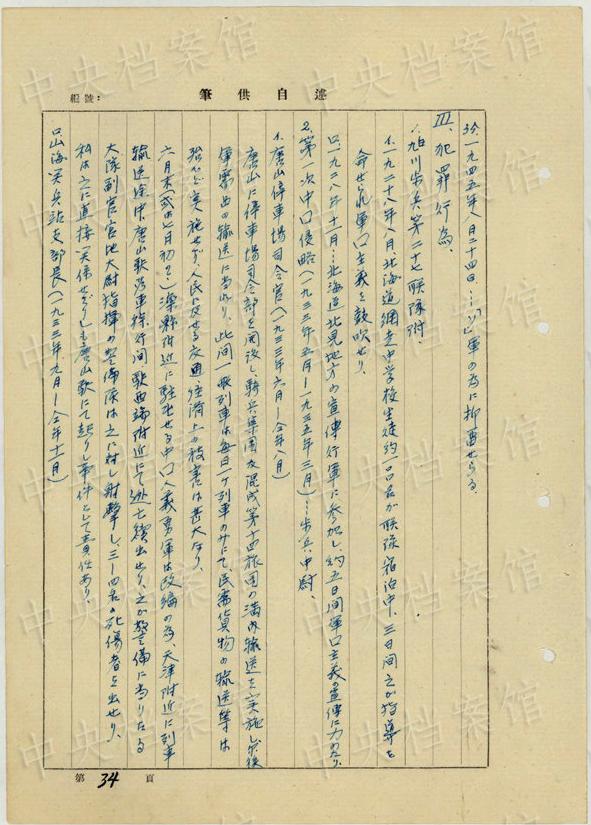 述自供筆
紙號:
35、一九四五年八月二十四日……「ソ」軍の為に抑留せらる。
III、犯罪行為、
1、旭川歩兵第二十七联隊附、
イ、一九二十八年八月北海道網走中学校生徒約一〇〇名が联隊宿泊中、三日間之が指導を
命せられ軍口主義を鼓吹せり、
口、一九二八年十一月…北海道北見地方の宣傳行軍に参加し約五日間軍口主義の宣傳に力めたり、
2、第一次中口侵略(一九三三年五月ー一九三五年三月)…歩兵中尉、
イ、唐山停車場司令官(一九三三年六月ー仝年八月)
唐山に停車場司令部を開設し騎兵集团及混成第十四旅团の満内輸送を実施し、爾後
軍需品の輸送に当れり、此间一般列車は毎日一ケ列車のみにて、民需貨物の輸送等は
殆んど実施せず、人民に及せる交通経済上の被害は甚大なり、
六月末(或は七月初め)灤縣附近に駐屯せる中口人義勇軍は改編の為、天津附近に列車
輸送途中、唐山駅停車间駅西端附近にて逃亡續出せり、之が警備に当りたる
大隊副官宮地大尉指揮の警備隊は之に対し射撃し、三ー四名の死傷者を出せり、
私は之に直接関係せざりしも唐山駅にて起りし事件として責任あり、
口、山海関兵站支部長(一九三三年九月ー仝年十一月)
第 34 頁
中央档案馆
中央档案馆
中央档案馆
中央档案馆